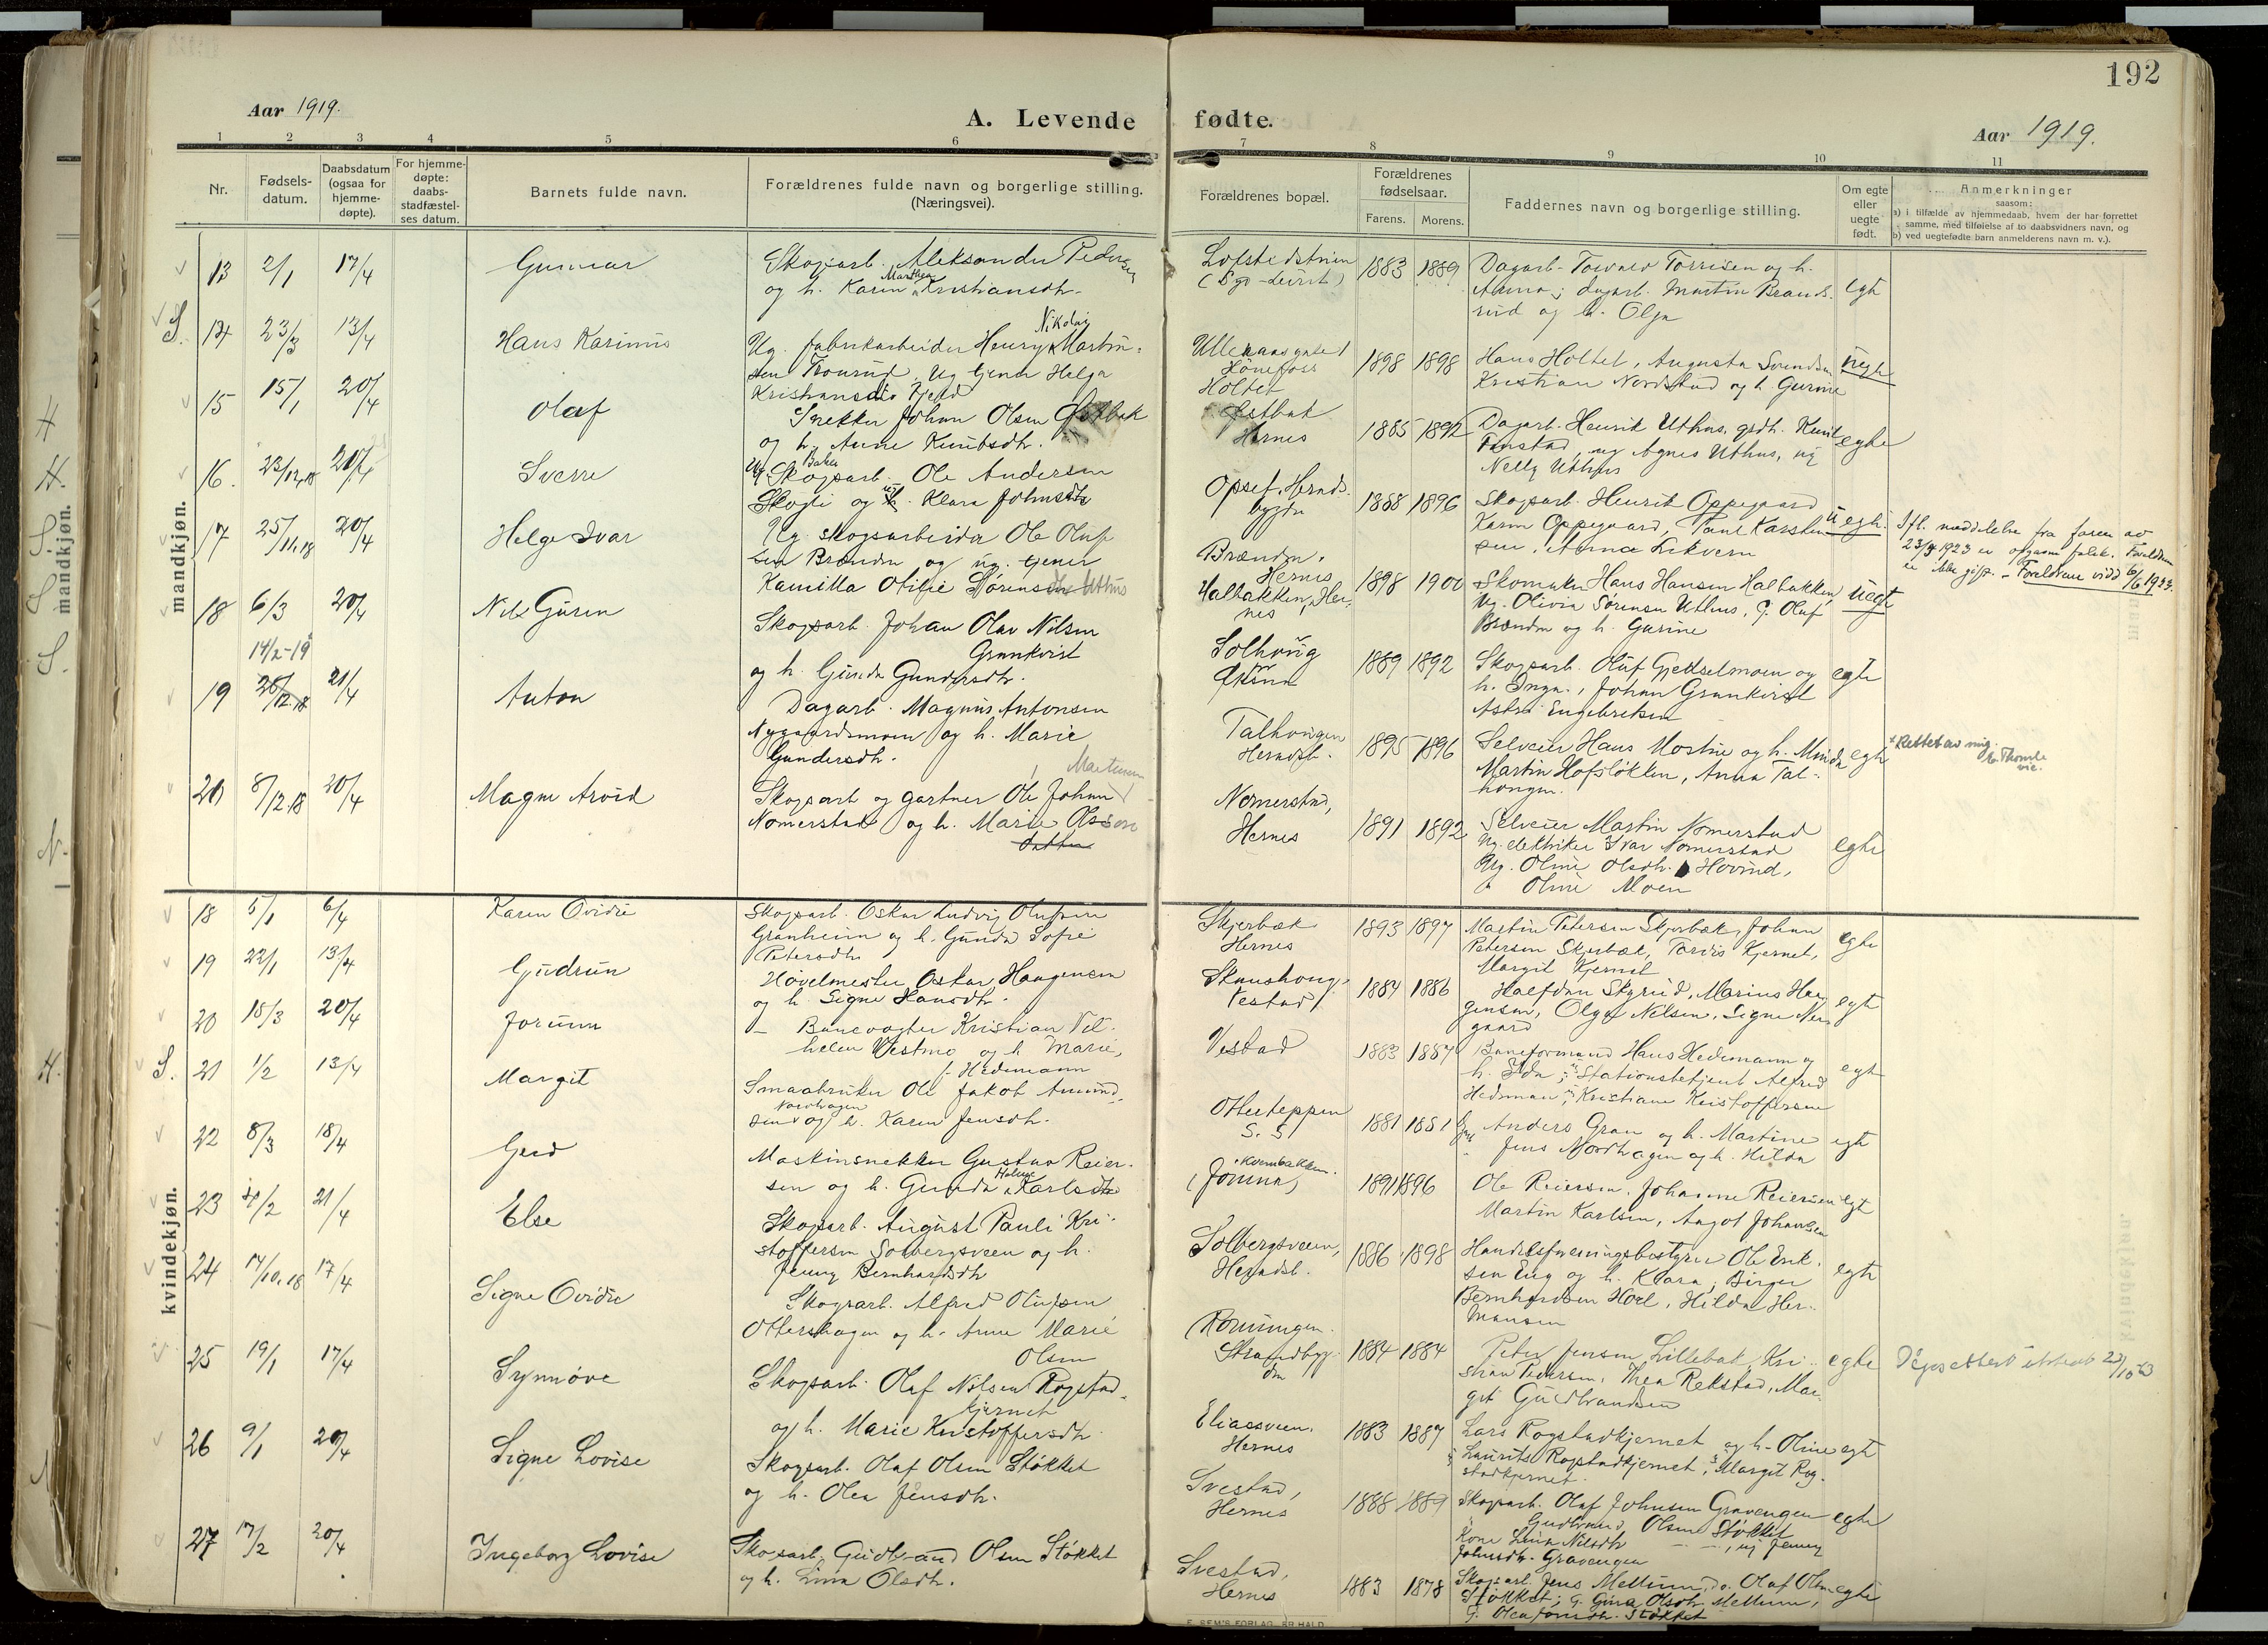 192
Aar 1919.
A. Levende fødte.
Aar 1919.
1 2 3 4 5 6 7 8 9 10 11
Nr.
Fødsels-
datum.
Daabsdatum
(ogsaa for
hjemme-
døpte).
For hjemme-
døpte:
daabs-
stadfæstel-
ses datum.
Barnets fulde navn.
Forældrenes fulde navn og borgerlige stilling.
(Næringsvei).
Forældrenes bopæl.
Forældrenes
fødselsaar.
Farens. Morens.
Faddernes navn og borgerlige stilling.
Om egte
eller
uegte
født.
Anmerkninger
saasom:
a) i tilfælde av hjemmedaab, hvem der har forrettet
samme, med tilføielse af to daabsvidners navn, og
b) ved uegtefødte barn anmelderens navn m. v.).
mandkjøn.
13 2/1 17/4 Gunnar
Skogsarb. Aleksander Pedersen
og h. Karen Marthea Kristiansdtr.
1883 1889
Dagarb. Torvald Torrisen og h.
Anna; dagarb. Martin Brands-
rud og h. Olga
egte
S. 14 23/3 13/4 Hans Karinius
Ug. fabrikarbeider Henry Nikolai Martin-
sen Trourud, Ug tjener Helga
Kristiansdtr
Hønefoss
Holtet
1898 1898
Hans Holtet, Augusta Svendsen
Kristian Nordstad og h. Gurine
uegte
15 15/1 20/4 Olaf
Snekker Johan Olsen Østbak
og h. Anne Knutsdtr.
Østbak
Hernes
1885 1892
Dagarb. Henrik Uthus, grdb. Knut
Finstad, ug Agnes Uthus, ug
Nelly Uthus
egte
16. 23/12.18 20/4 Sverre
Ug. Skogsarb. Ole Andersen
Skogli og Klara Johnsdtr
Opset, Hernds-
bygda
1888 1896
Skogsarb. Henrik Oppegaard
Karen Oppegaard, Paul Karsten-
sen, Anna Lekvern
uegte.
Ifl. meddelelse fra faren av
23/3 1923 er opgaven falsk. Foreldrene
er ikke gift. – Foreldrene viedd 6/6 1923.
17 25/11.18 20/4 Helge Ivar
Ug. skogsarbeider Ole Oluf-
sen Brænden og ug. tjener
Kamilla Otilie Sørensdtr Uthus
Brænden,
Hernes
Halbakken, Her-
nes
1898 1900
Skomaker Hans Hansen Halbakken,
Ug. Olivia Sørensen Uthus, G. Olaf
Brænden og h. Gurine
uegte
18 6/3 20/4 Nils Guren
Skogsarb. Johan Olav Nilsen
Grankvist
og h. Gunda Gundersdtr.
Solhaug
1889 1892
Skogsarb. Oluf Gjetselmoen og
h. Inga., Johan Grankvist
Astri Engebretsen
egte
14/2-19
19 26/12.18 21/4 Anton
Dagarb. Magnus Antonsen
Nygaardsmoen og h. Marie
Gundersdtr.
Talhougen
Herndsb.
1895 1896
Selveier Hans Mostue og h. Minda
Martin Hofsløkken, Anna Tal-
hougen.
egte
x Rettet av mig.
Thomle
vic.
20 8/12.18 20/4 Magne Arvid
Skogsarb og gartner Ole Johan Martinsen
Nomerstad og h. Marie Olsson
datter
Nomerstad,
Hernes
1891 1892
Selveier Martin Nomerstad
Ug. elektriker Ivar Nomerstad
Ug. Oline Olsdtr. Hovind,
" Oline Moen
egte
kvindekjøn.
18 5/1 6/4 Karen Ovidie
Skogsarb. Oskar Ludvig Olufsen
Granheim og h. Gunda Sofie
Petersdtr
Skjerbæk
Hernes
1893 1897
Martin Petersen Skjerbæk, Johan
Petersen Skjerbæk, Tordis Kjernet,
Margit Kjernet
egte
19 22/1 13/4 Gudrun
Høvelmester Oskar Haagensen
og h. Signe Hansdtr.
Skaushoug,
Vestad
1884 1886
Halfdan Skyrud, Marius Haa-
gensen, Olga Nilsen, Signe Ner-
gaard
egte
20 18/3 20/4 Jorunn
Banevogter Kristian Vil-
helm Vestmo og h Marie,
f. Hedemann
Vestad
1883 1887
Baneformand Hans Hedemann og
h. Ida; Stationsbetjent Alfred
Hedeman; Kristiane Kristoffersen
egte
S. 21 1/2 13/4 Margit
Smaabruker Ole Jakob Amund-
sen Nordhagen og h. Karen Jensdtr.
Otterteppen
S. S
1881 1881
Anders Gran og h. Martine
Jens Nordhagen og h. Hilda
egte
22 8/3 18/4 Gerd
Maskinsnekker Gustav Reier-
sen og h. Gunda Karlsdtr
Kvernbakken.
(Jømna)
1891 1896
Ole Reiersen, Johanne Reiersen
Martin Karlsen, Aagot Johansen
egte
23 21/4 Else
Skogsarb. August Pauli Kri-
stoffersen Solbergsveen og h.
Jenny Bernhardsdtr
Solbergsveen,
Herndsb.
1886 1898
Handelsforeningsbestyrer Ole Erik-
sen Eng og h. Klara; Birger
Bernhardsen Hoel, Hilda Her-
mansen
egte
24 14/10.18 17/4 Signe Ovidie
Skogsarb. Alfred Olufsen
Ottershagen og h. Anne Marie
Olsen
Rønningen.
Strandbyg-
da
1884 1884
Peter Jensen Lillebæk, Kri-
stian Pedersen, Thea Rekstad, Mar-
git Gudbrandsen
egte
25 19/1 17/4 Synnøve
Skogsarb. Olaf Nilsen Rogstad-
kjernet
og h. Marie Kristoffersdtr
Eliassveen.
Hernes
1883 1887
Lars Rogstadkjernet og h. Oline
Laurits Rogstadkjernet, Margit Rog-
stadkjernet.
egte
26 9/1 20/4 Signe Lovise
Skogsarb. Olaf Olsen Støkket
og h. Olea Jensdtr.
Svestad,
Hernes
1888 1889
Skogsarb. Olaf Johnsen Gravengen
Gudbrand Olsen Støkket
Kone Lina Nilsdtr — —, ug Jenny
Johnsdtr. Gravengen
egte
27 17/2 20/4 Ingeborg Lovise
Skogsarb. Gudbrand Olsen Støkket
og h. Lina Olsdtr.
Svestad,
Hernes
1883 1878
Skogsarb. Jens Mellum, do. Olaf Olsen
Støkket; G. Gina Olsdtr. Mellum,
G. Olea Jensdtr. Støkket
egte